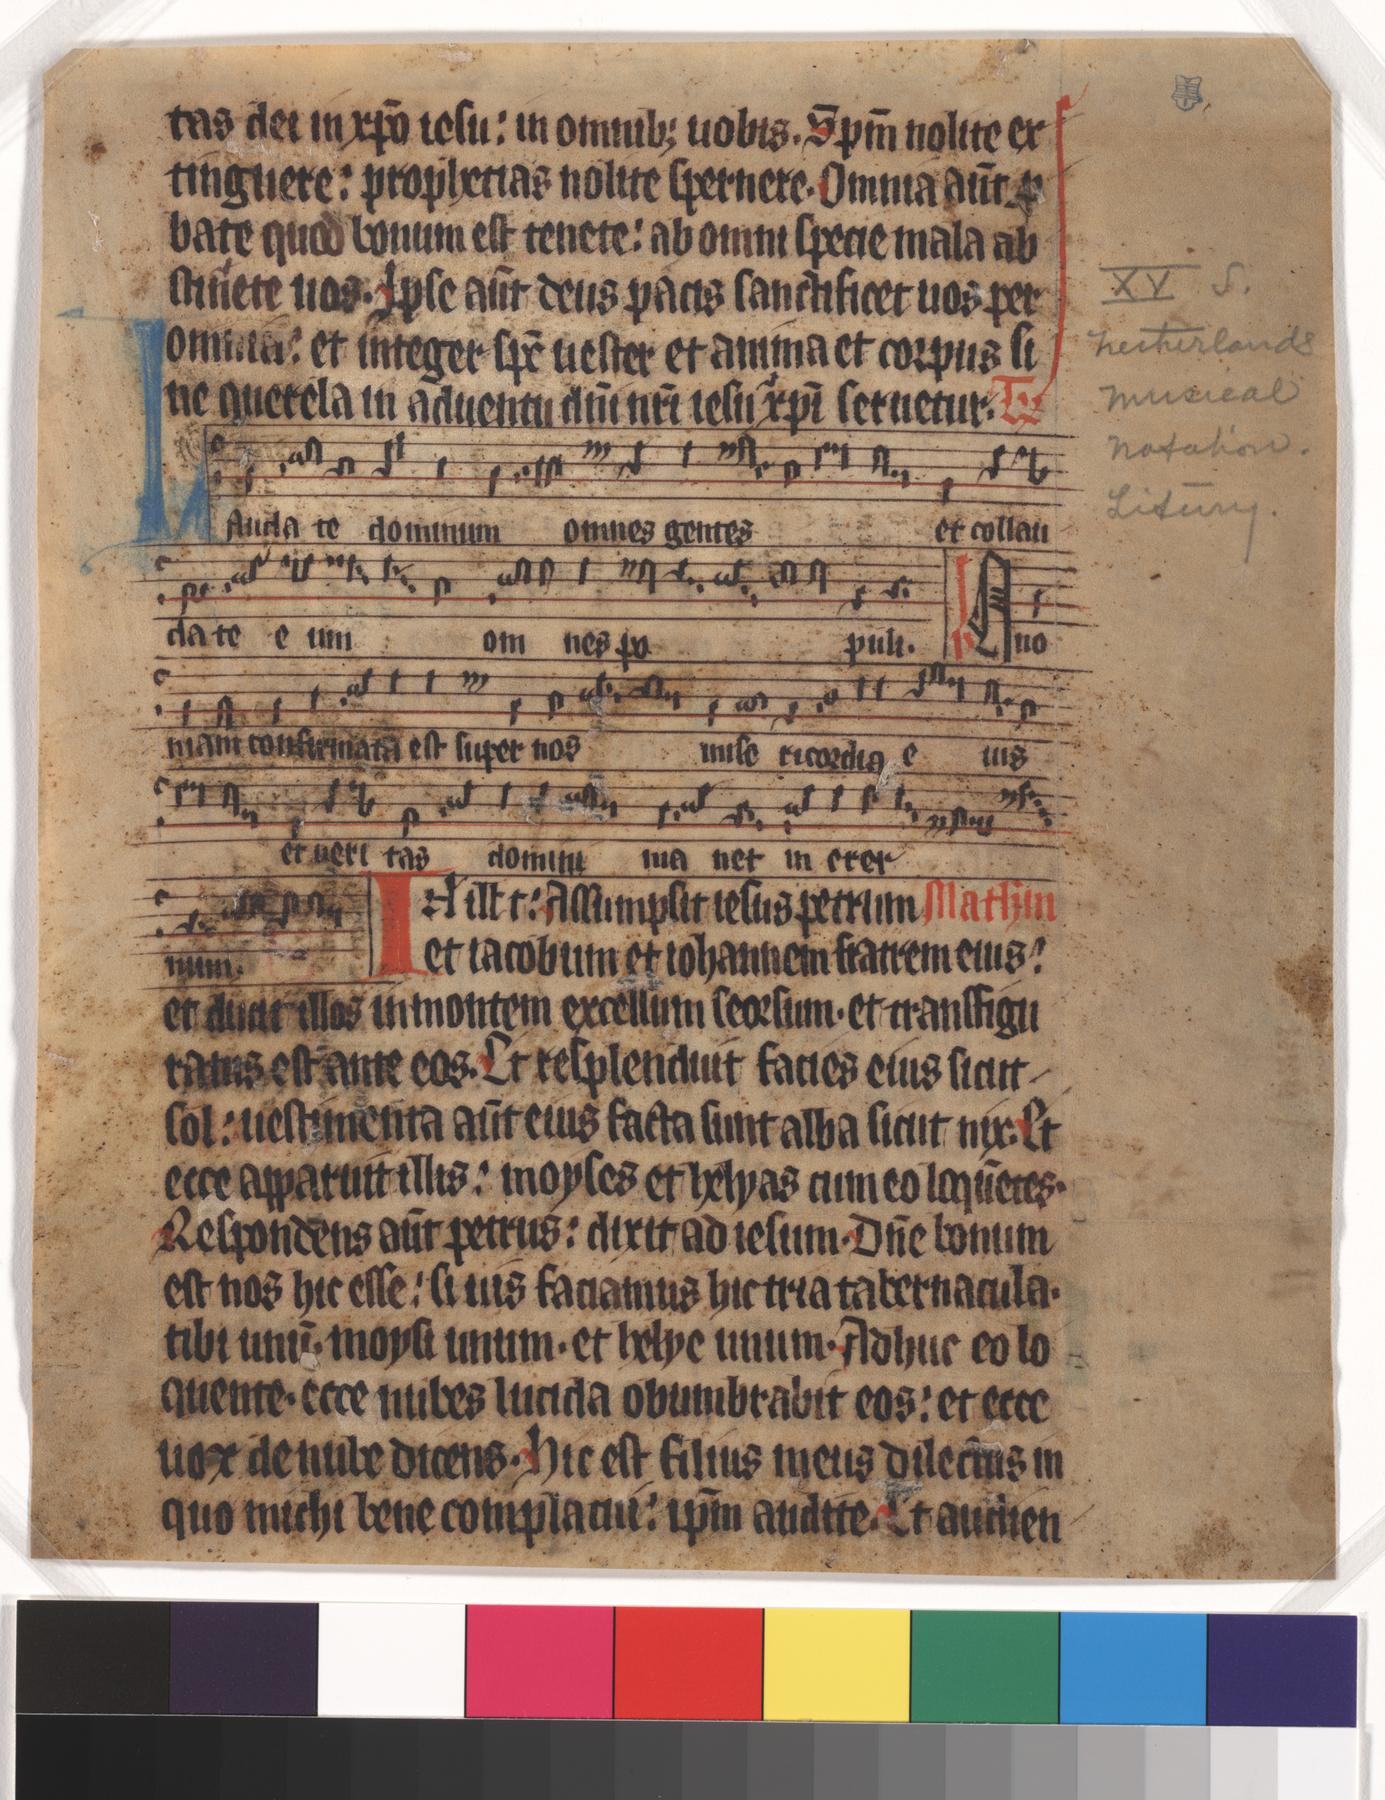 tas dei in xp̄o iesu: in omnib; uobis. Sp̄m nolite ex
tinguere: prophetias nolite spernere. Omnia aūt ꝓ
bate quod bonum est tenete: ab omni specie mala ab
stinete uos. Ipse aūt deus pacis sanctificet uos per
omnia: et integer sp̄c uester et anima et corpus si
ne querela in aduentu dn̄i nr̄i iesu xp̄i seruetur. Tr̄
Lauda te dominum omnes gentes et collau
da te e um om nes po puli. V Quo
niam confirmata est super nos mise ricordia e ius
et ueri tas domini ma net in eter
num.
IN illo t: Assumpsit iesus petrum Mathm
et iacobum et iohannem fratrem eius:
et duxit illos in montem excelsum seorsum. et transfigu
ratus est ante eos. Et resplenduit facies eius sicut
sol: uestimenta aūt eius facta sunt alba sicut nix. Et
ecce apparuit illis: moyses et helyas cum eo loquētes.
Respondens aūt petrus: dixit ad iesum. Dn̄e bonum
est nos hic esse: si uis faciamus hic tria tabernacula.
tibi unū. moysi unum. et helye unum. Adhuc eo lo
quente. ecce nubes lucida obumbrabit eos: et ecce
uox de nube dicens. Hic est filius meus dilectus in
quo michi bene complacui: ip̄m audite. Et audien
XV S.
Netherlands
musical
notation.
Liturg.